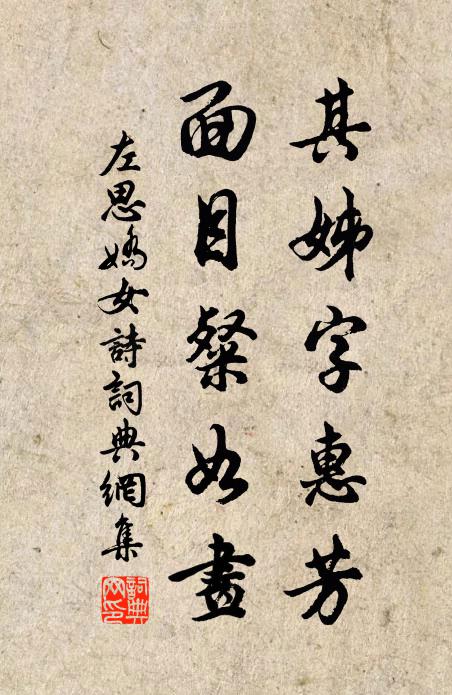 其姊字惠芳
面目粲如畫
左思嬌女詩詞典網集
詞典
网印